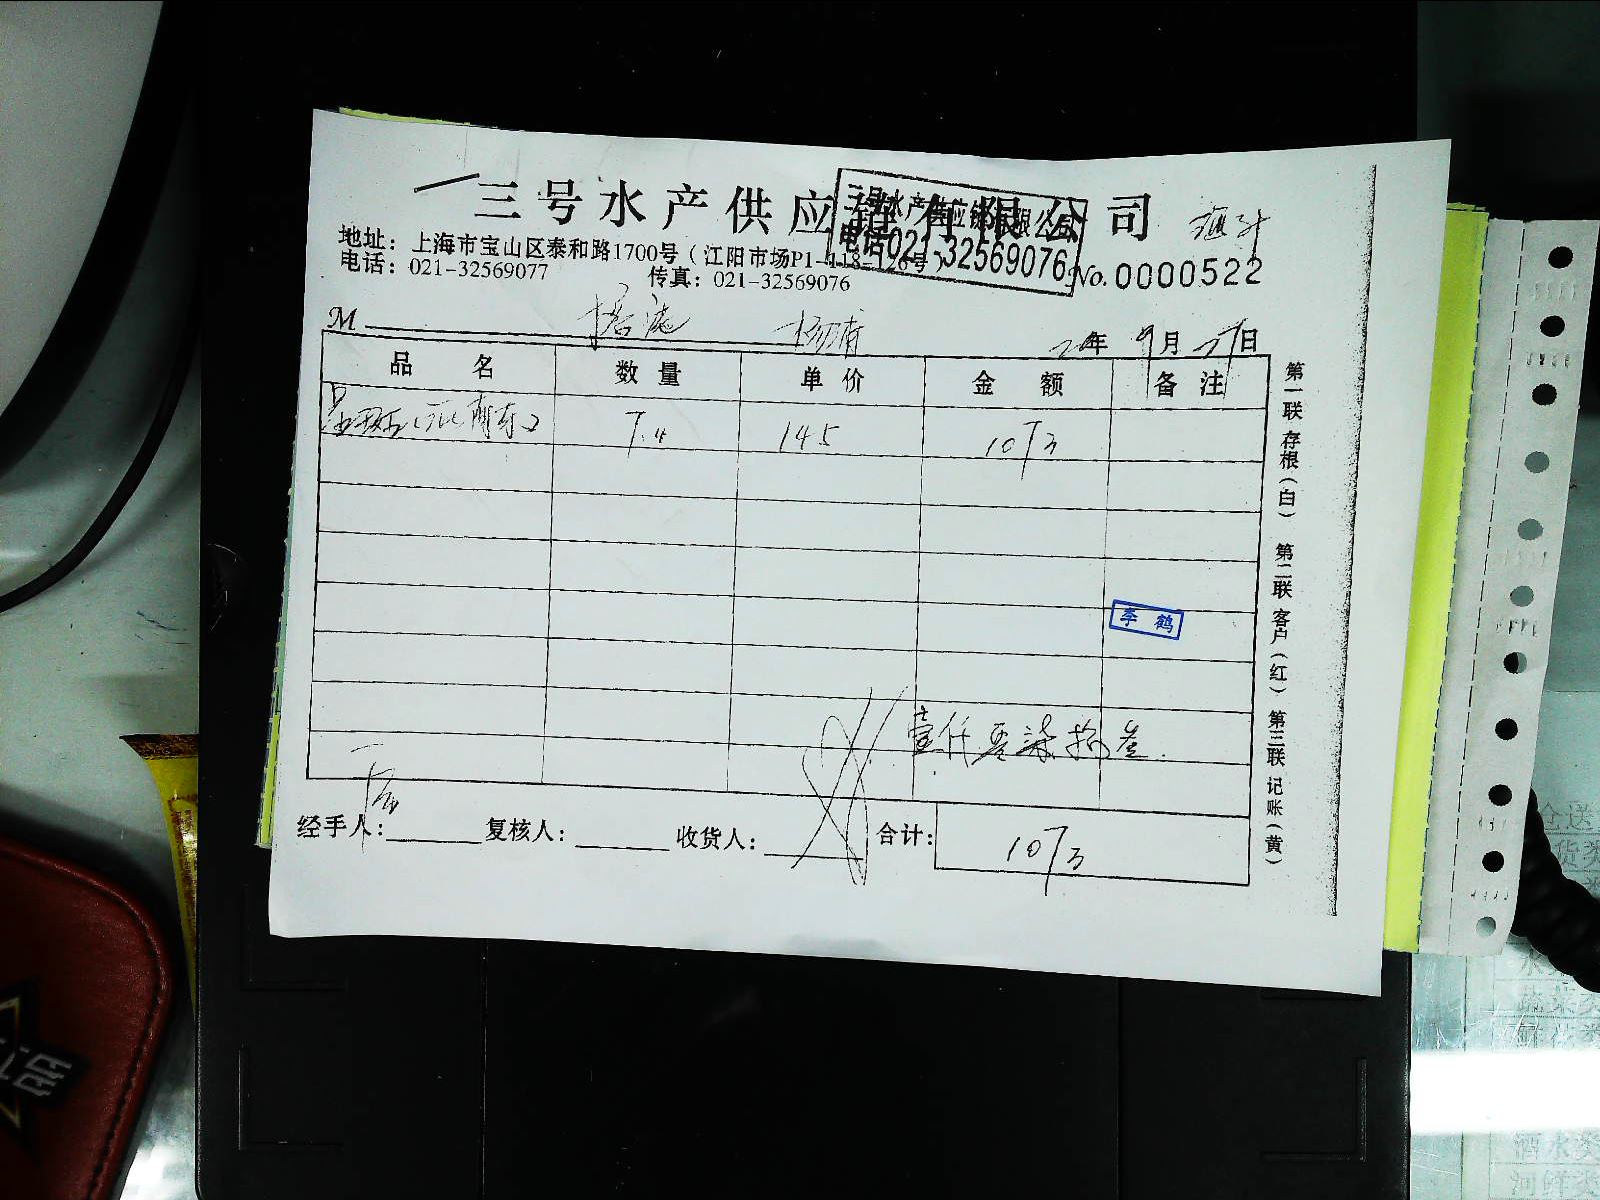 三号水产供应链有限公司
三号水产供应链有限公司
电话021-32569076
地址：上海市宝山区泰和路1700号（江阳市场P1-118-126号）
电话：021-32569077 传真：021-32569076 No.0000522
M 杨浦 年 9月 27日
品名 数量 单价 金额 备注
7.4 145 1073
第一联 存根（白） 第二联 客户（红） 第三联 记账（黄）
李鹤
壹仟零柒拾叁
经手人： 复核人： 收货人： 合计：1073
仓送
货类
水
蔬菜类
鲜花类
酒水类
河鲜类